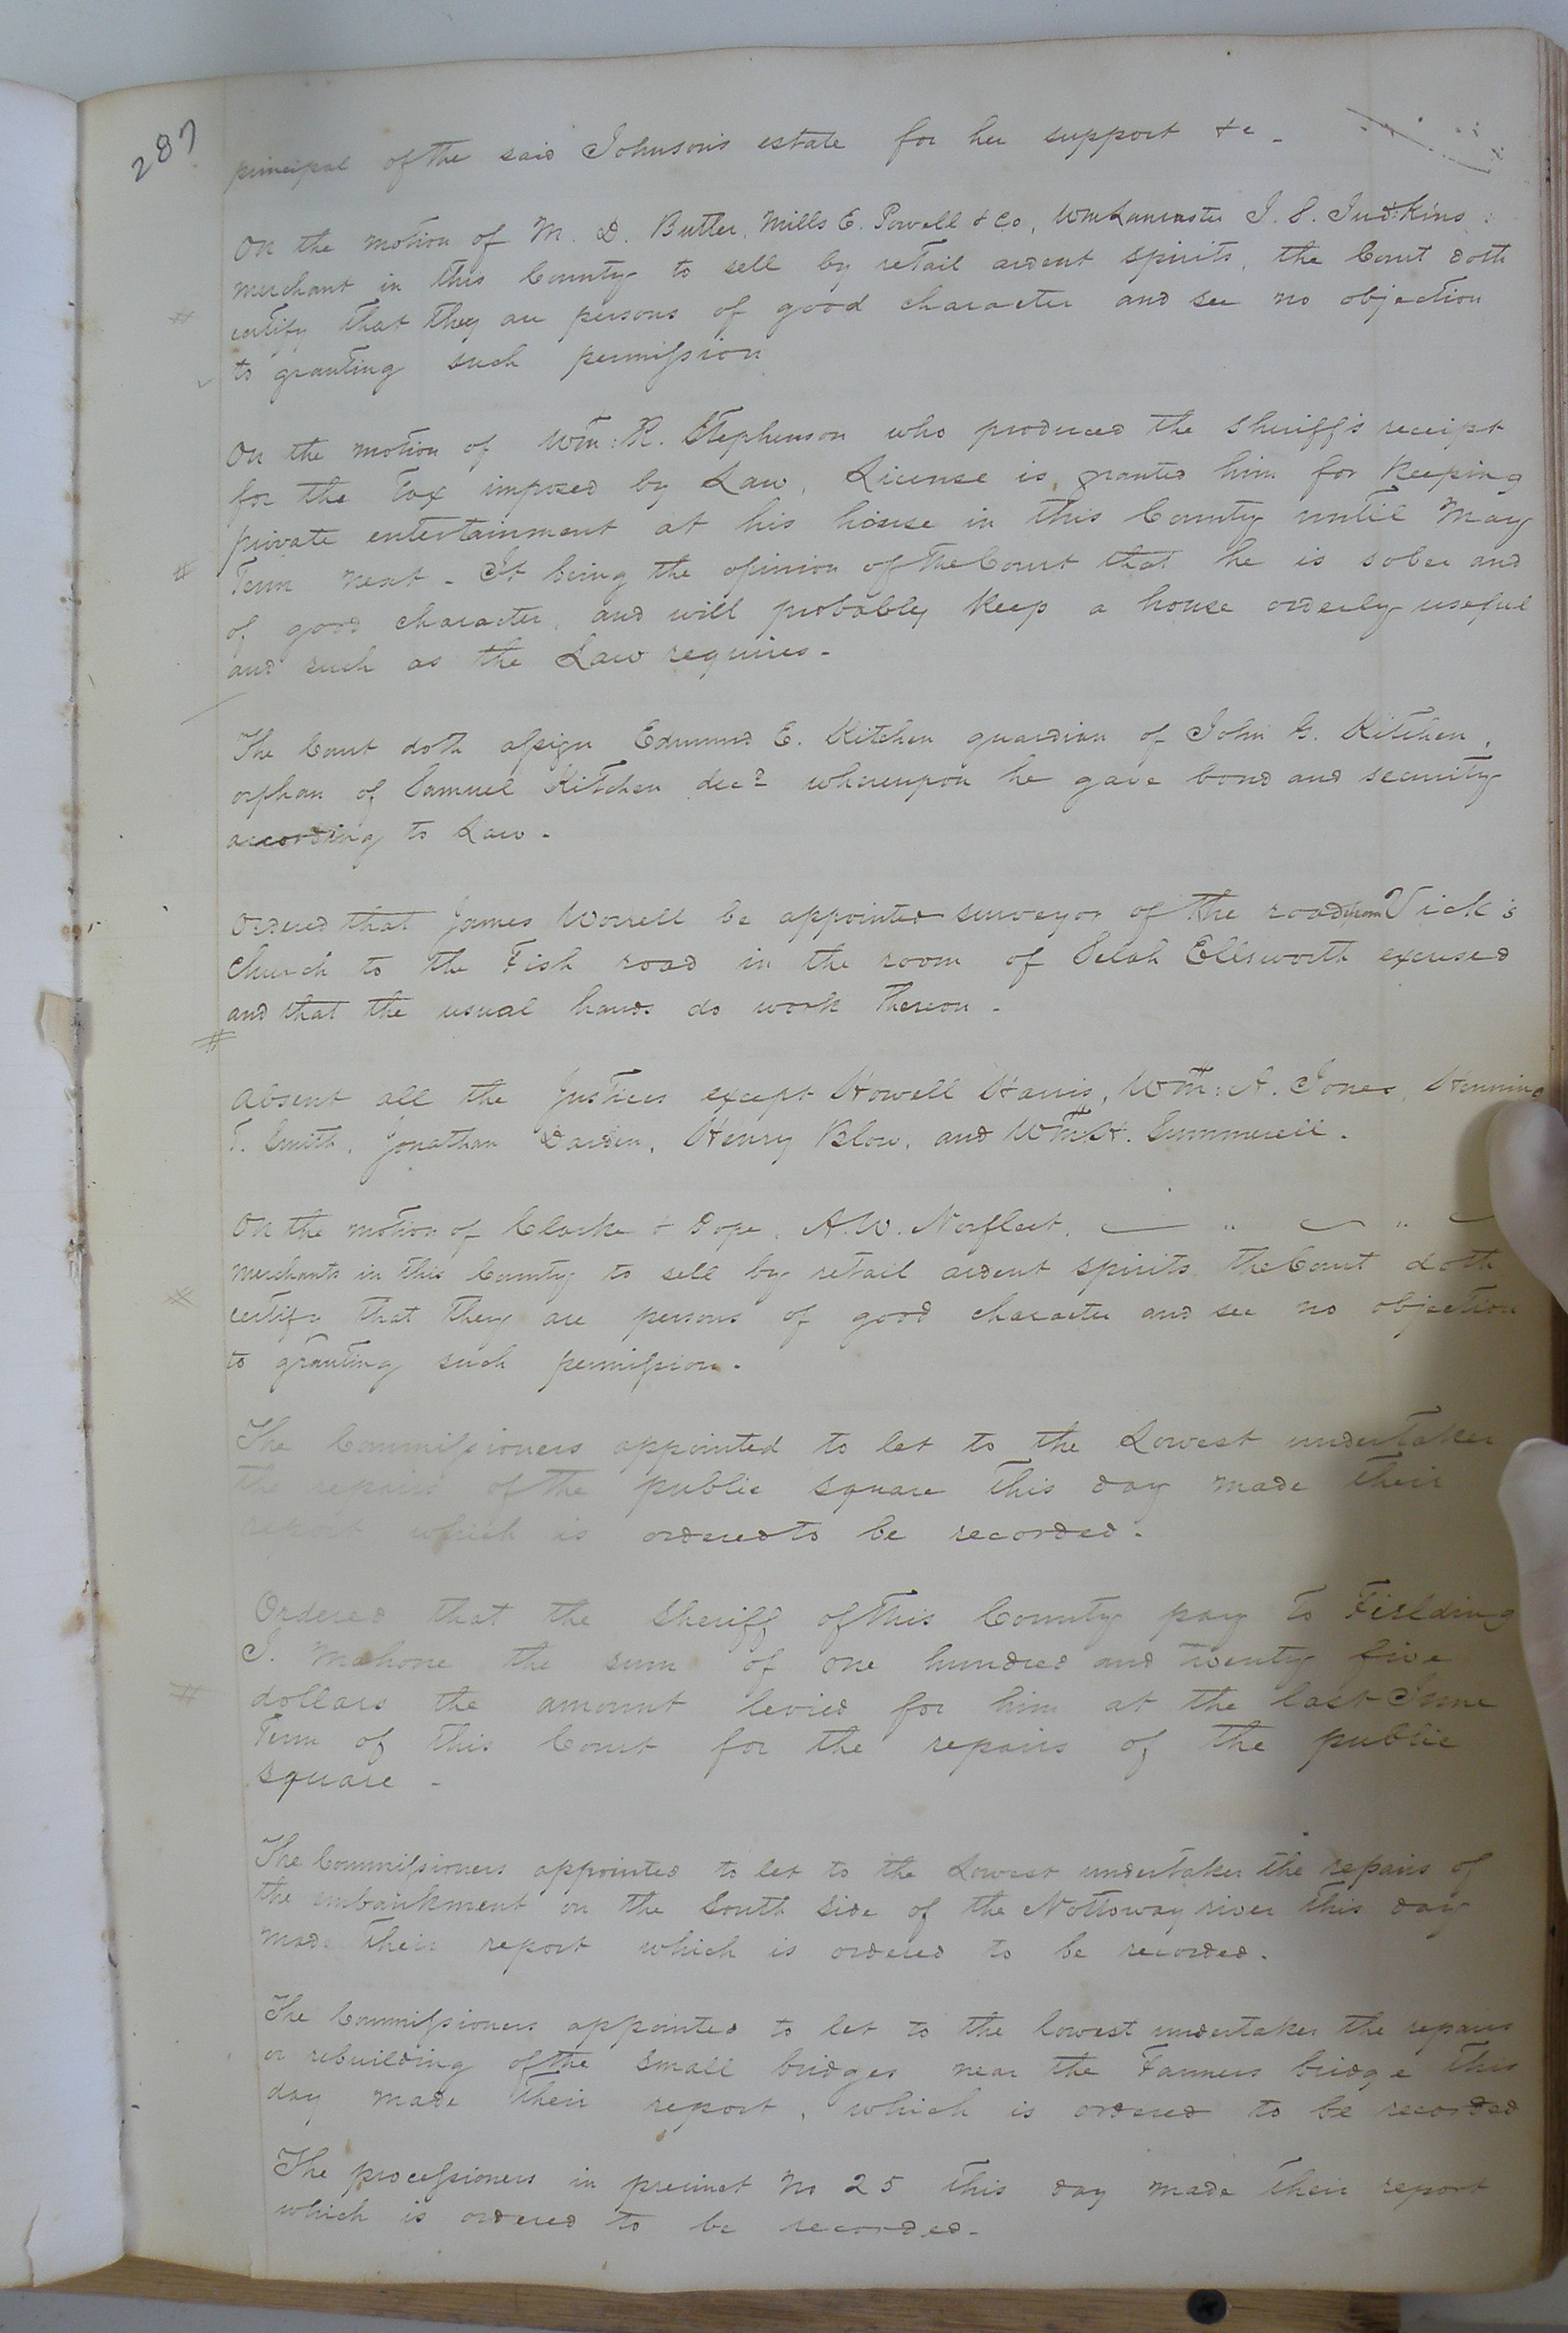 287
principal of the said Johnson's estate for her support &c -
On the motion of M. D. Butler, Mills E. Powell & Co, Wm Lancaster J. S. Judkins
merchant in this County to sell by retail ardent spirits, the Court doth
certify that they are persons of good character and see no objection
to granting such permission
On the motion of Wm: R. Stephenson who produced the Sheriff's receipt
for the Tax imposed by Law, License is granted him for keeping
private entertainment at his house in this County until May
Term next - It being the opinion of the Court that he is sober and
of good character, and will probably keep a house orderly useful
and such as the Law requires -
The Court doth assign Edmund E. Kitchen guardian of John G. Kitchen,
orphan of Samuel Kitchen decd whereupon he gave bond and security
according to Law -
Ordered that James Worrell be appointed surveyor of the road from Vick's
Church to the Fish road in the room of Selah Ellsworth excused
and that the usual hands do work thereon -
Absent all the Justices except Howell Harris, Wm: A. Jones, Henning
T. Smith, Jonathan Darden, Henry Blow, and Wm H. Summerell.
On the motion of Clarke & Pope, A. W. Norfleet,
Merchants in this County to sell by retail ardent spirits, the Court doth
certify that they are persons of good character and see no objection
to granting such permission -
The Commissioners appointed to let to the Lowest undertaker
the repairs of the public square this day made their
report which is ordered to be recorded -
Ordered that the Sheriff of this County pay to Fielding
J. Mahone the sum of one hundred and twenty five
dollars the amount levied for him at the last June
Term of this Court for the repairs of the public
square -
The Commissioners appointed to let to the Lowest undertaker the repairs of
the embankment on the South side of the Nottoway river this day
made their report which is ordered to be recorded -
The Commissioners appointed to let to the lowest undertaker the repairs
or rebuilding of the small bridges near the Farmers bridge this
day made their report, which is ordered to be recorded
The processioners in precinct No 25 this day made their report
which is ordered to be recorded -